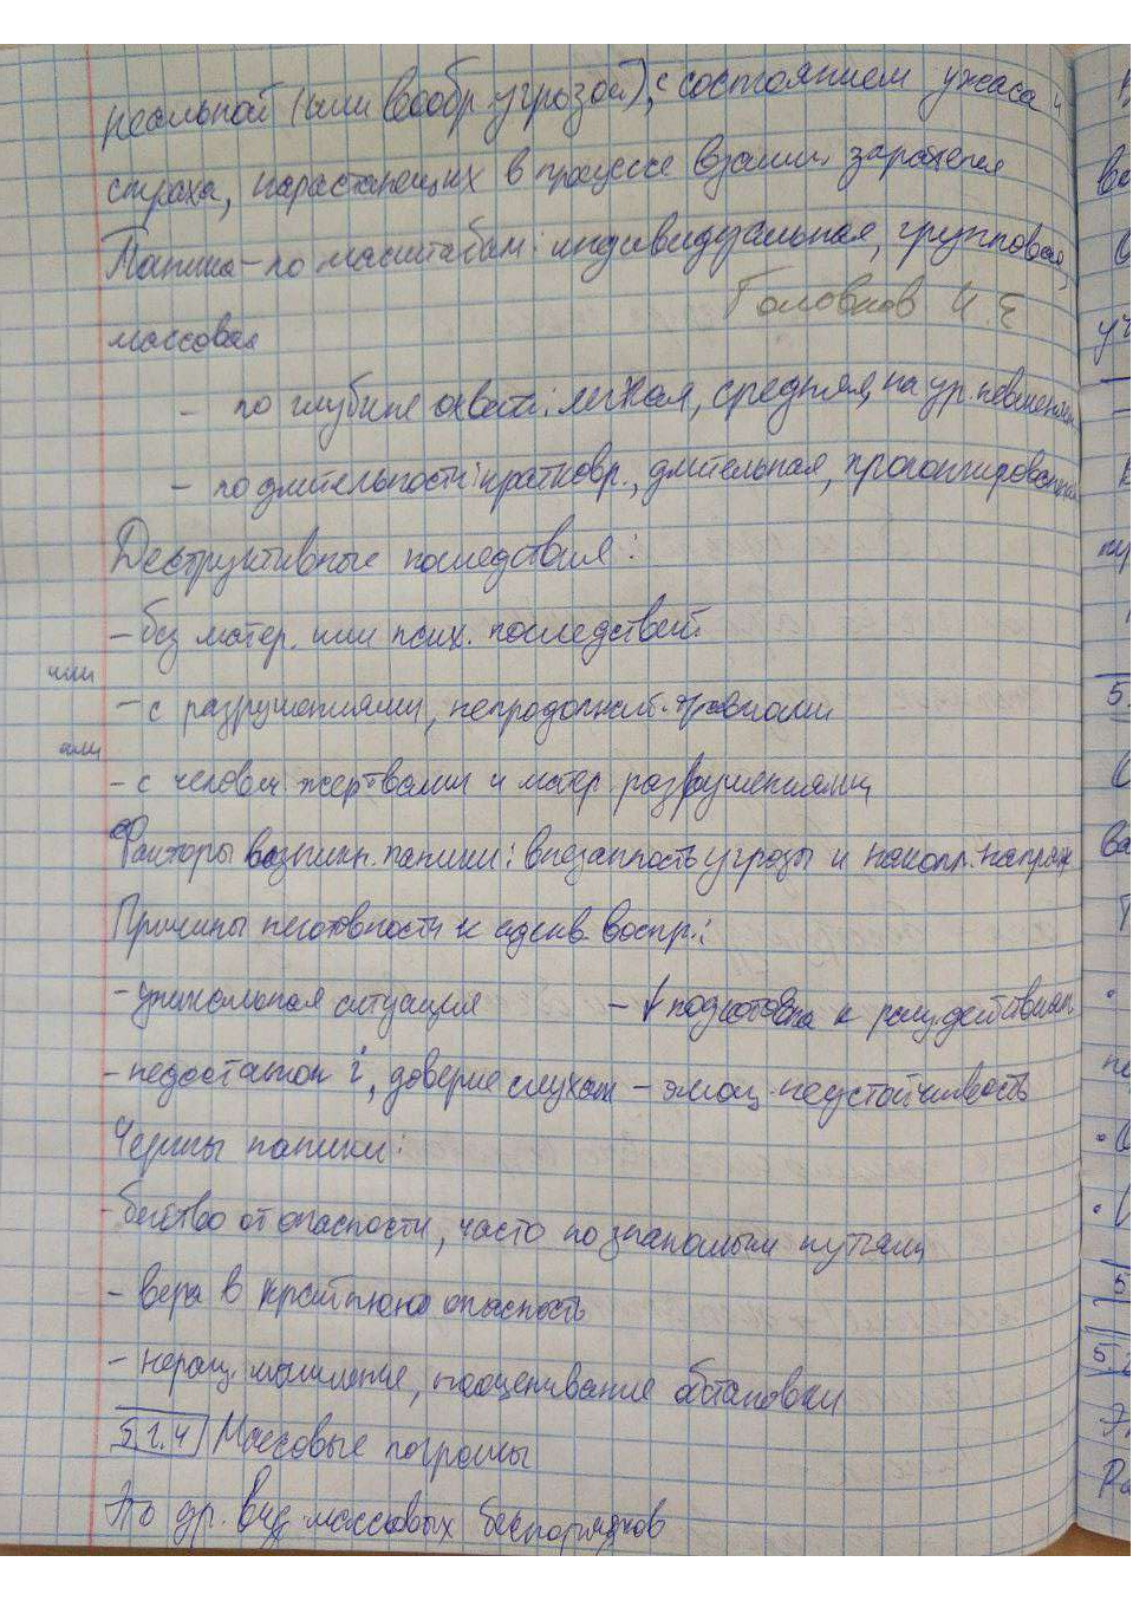 реальной (или вообр. угрозой), с состоянием ужаса и
страха, нарастающих в процессе взаимн. заражения
Паника - по масштабам: индивидуальная, групповая,
Головков И.Е
массовая
- по глубине охвата: легкая, средняя, на ур. невменяем.
- по длительности: кратковр., длительная, пролонгированная
Деструктивные последствия:
- без матер. или псих. последствий
или
- с разрушениями, непродолжит. травмами
или
- с человеч жертвами и матер разрушениями
Факторы возникн. паники: внезапность угрозы и накопл. напряж
Причины неготовности к адекв. воспр.:
- уникальная ситуация - ↓ подготовка к рац. действиям
- недостаток i, доверие слухам - эмоц. неустойчивость
Черты паники:
- бегство от опасности, часто по знакомым путям
- вера в крайнюю опасность
- нерац. мышление, оценивание обстановки
5.1.4 Массовые погромы
Это др. вид массовых беспорядков